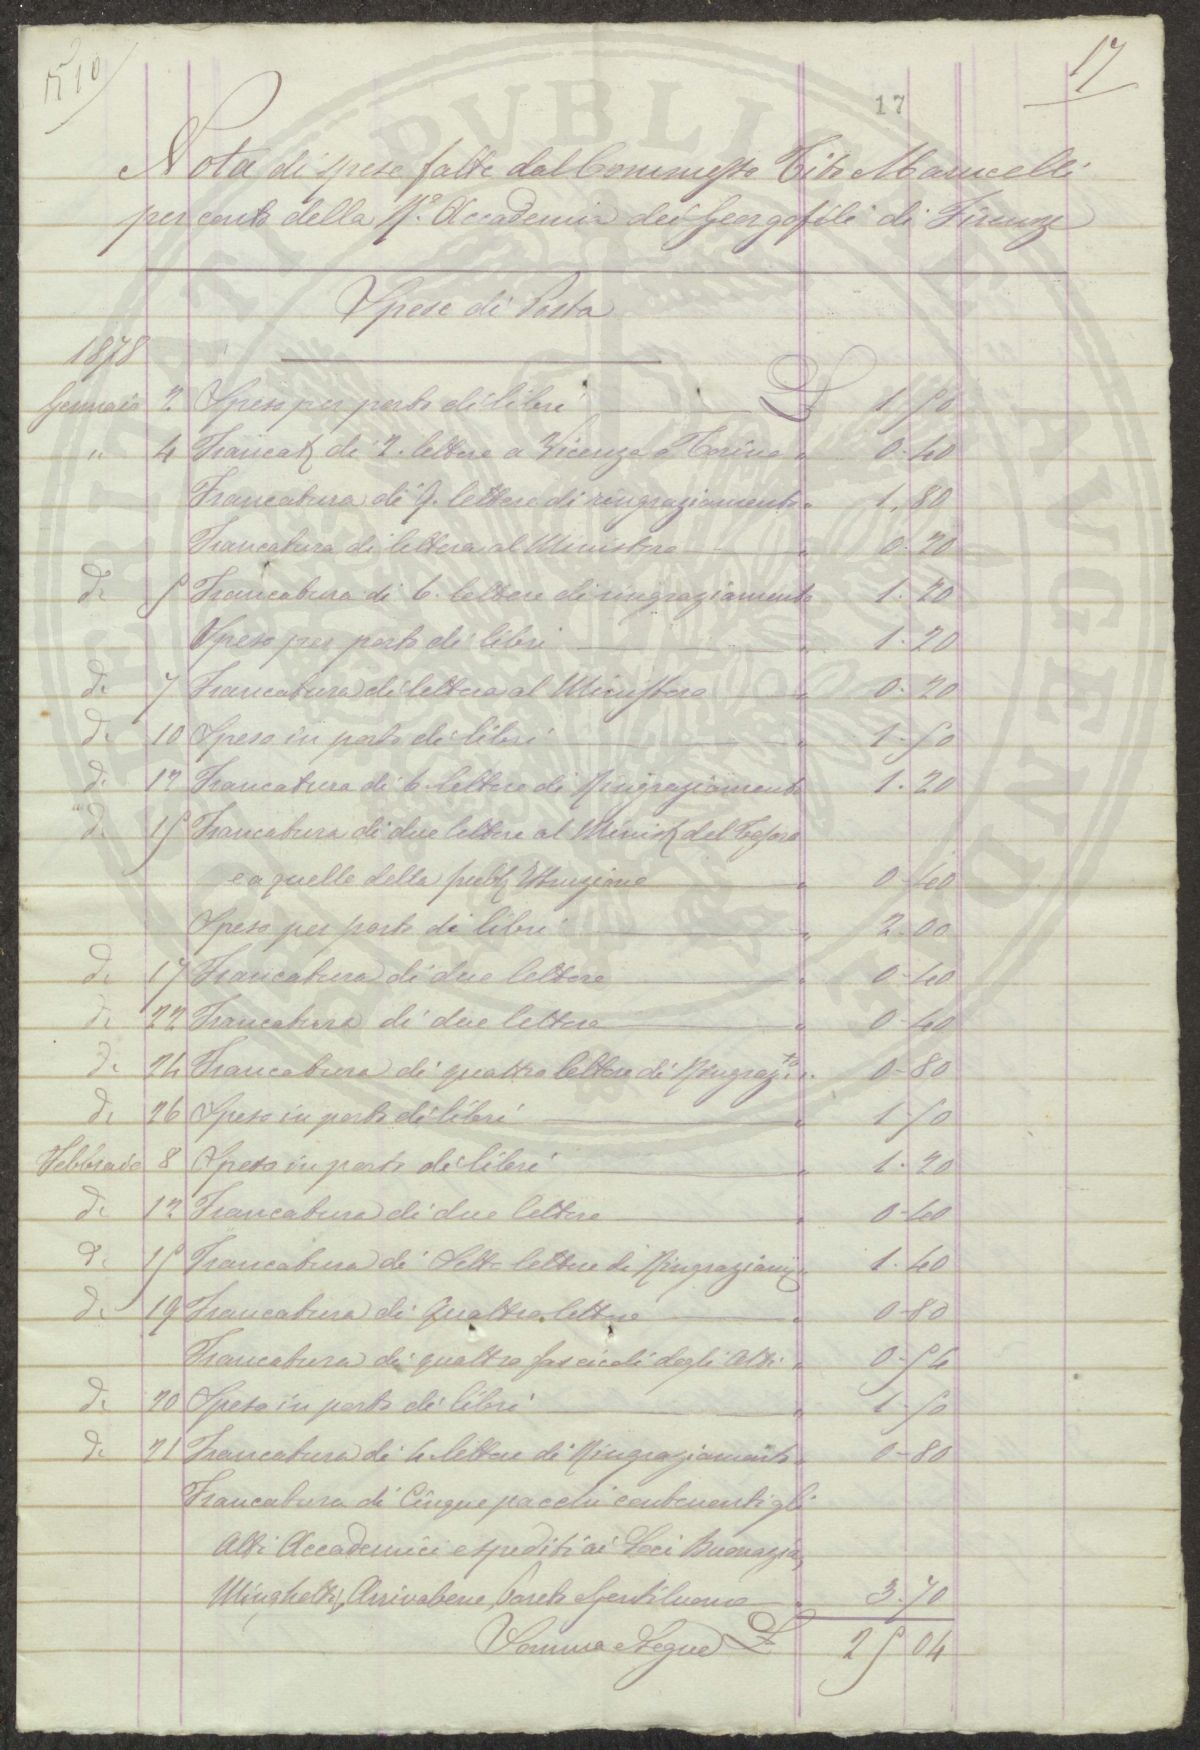 N 10
17
17
Nota di spese fatte dal Commesso Tito Marucelli
per conto della R.a Accademia dei Georgofili di Firenze
Spese di Posta
1878
Gennaio 2 Spesa per porto di libri £ 1.50
" 4 Francat di 2. lettere a Vicenza e Torino " 0.40
Francatura di 9. lettere di ringraziamento " 1.80
Francatura di lettera al Ministero " 0.20
Do 5 Francatura di 6. lettere di ringraziamento 1.20
Spesa per porto di libri " 1.20
Do 7 Francatura di lettera al Ministero " 0.20
Do 10 Spesa in porto di libri " 1.50
Do 12 Francatura di 6. lettere di Ringraziamento 1.20
Do 15 Francatura di due lettere al Minist del Tesoro
e a quelle della pubb Istruzione " 0.40
Spesa per porto di libri " 2.00
Do 17 Francatura di due lettere " 0.40
Do 22 Francatura di due lettere " 0.40
Do 24 Francatura di quattro lettere di Ringrazto " 0.80
Do 26 Spesa in porto di libri " 1.50
Febbraio 8 Spesa in porto di libri " 1.20
Do 12 Francatura di due lettere " 0.40
Do 15 Francatura di Sette lettere di Ringraziam " 1.40
Do 19 Francatura di Quattro lettere " 0.80
Francatura di quattro fascicoli degli Atti " 0.54
Do 20 Spesa in porto di libri " 1.50
Do 21 Francatura di 4. lettere di Ringraziamento " 0.80
Francatura di Cinque pacchi contenenti gli
Atti Accademici espediti ai Soci
Minghetti, Arrivabene, Pareto Gentiluomo " 3.70
Somma e Segue £ 25 04